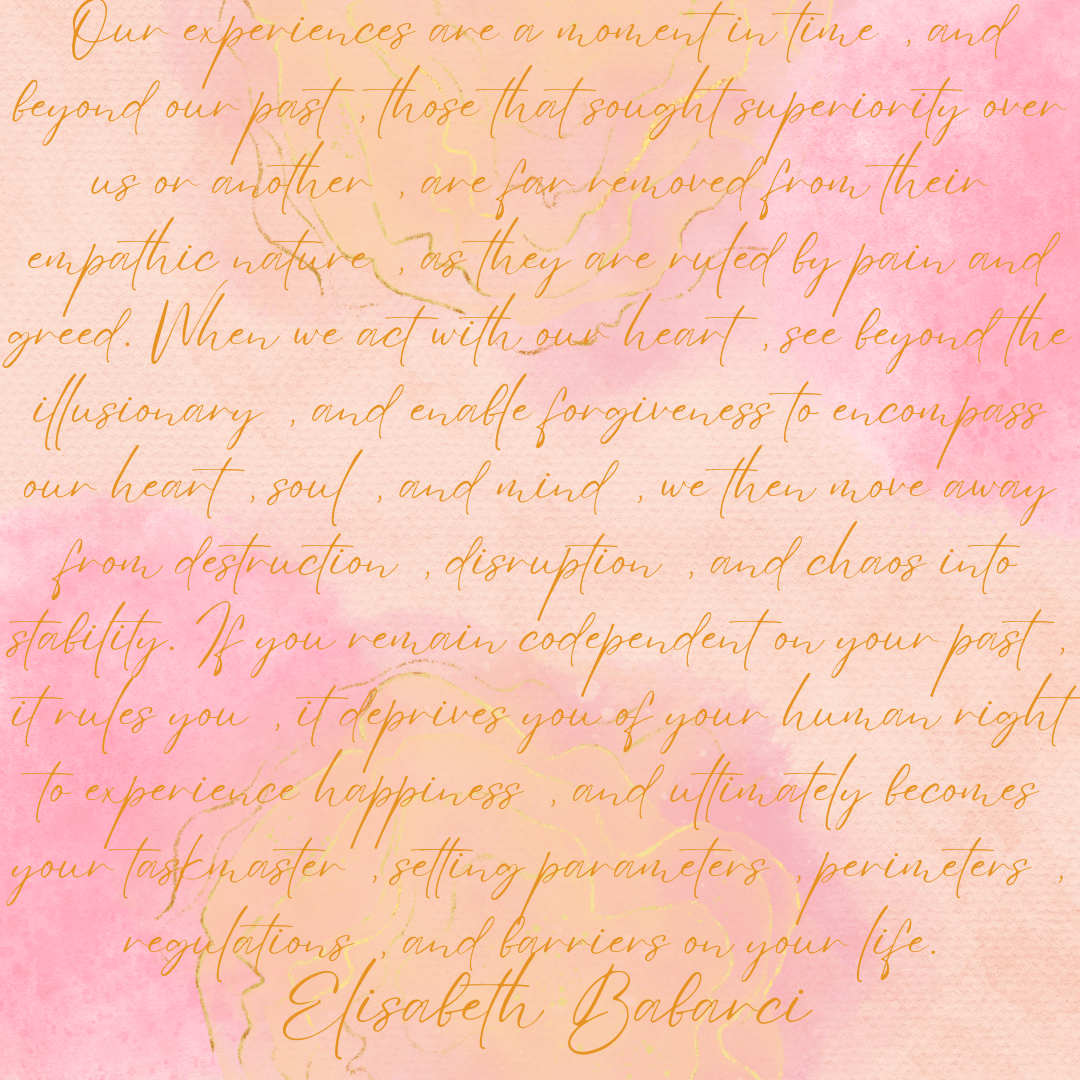 Our experiences are a moment in time , and
beyond our past , those that sought superiority over
us or another , are far removed from their
empathic nature , as they are ruled by pain and
greed. When we act with our heart , see beyond the
illusionary , and enable forgiveness to encompass
our heart , soul , and mind , we then move away
from destruction , disruption , and chaos into
stability. If you remain codependent on your past ,
it rules you , it deprives you of your human right
to experience happiness , and ultimately becomes
your taskmaster , setting parameters , perimeters ,
regulations , and barriers on your life.
Elisabeth Babarci